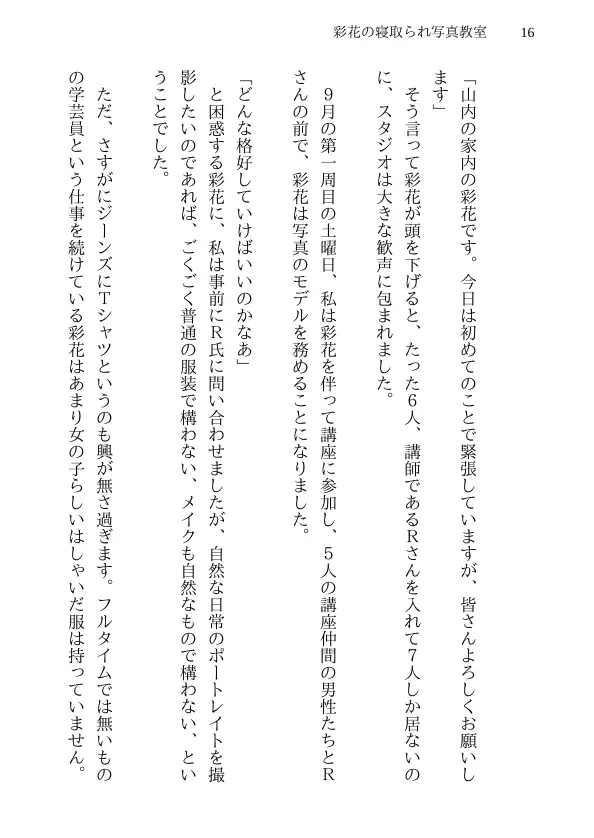 彩花の寝取られ写真教室 16
「山内の家内の彩花です。今日は初めてのことで緊張していますが、皆さんよろしくお願いし
ます」
そう言って彩花が頭を下げると、たった６人、講師であるＲさんを入れて７人しか居ないの
に、スタジオは大きな歓声に包まれました。
９月の第一周目の土曜日、私は彩花を伴って講座に参加し、５人の講座仲間の男性たちとＲ
さんの前で、彩花は写真のモデルを務めることになりました。
「どんな格好していけばいいのかなあ」
と困惑する彩花に、私は事前にＲ氏に問い合わせましたが、自然な日常のポートレイトを撮
影したいのであれば、ごくごく普通の服装で構わない、メイクも自然なもので構わない、とい
うことでした。
ただ、さすがにジーンズにＴシャツというのも興が無さ過ぎます。フルタイムでは無いもの
の学芸員という仕事を続けている彩花はあまり女の子らしいはしゃいだ服は持っていません。